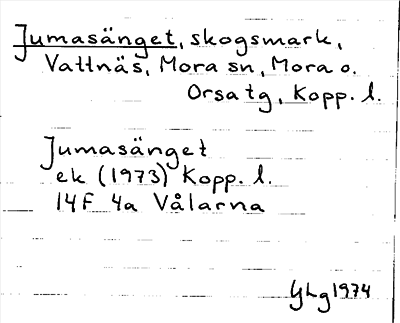 Jumasänget, skogsmark,
Vattnäs, Mora sn, Mora o.
Orsa tg, Kopp. l.
Jumasänget
ek (1973) Kopp. l.
14F 4a Vålarna
GLg 1974